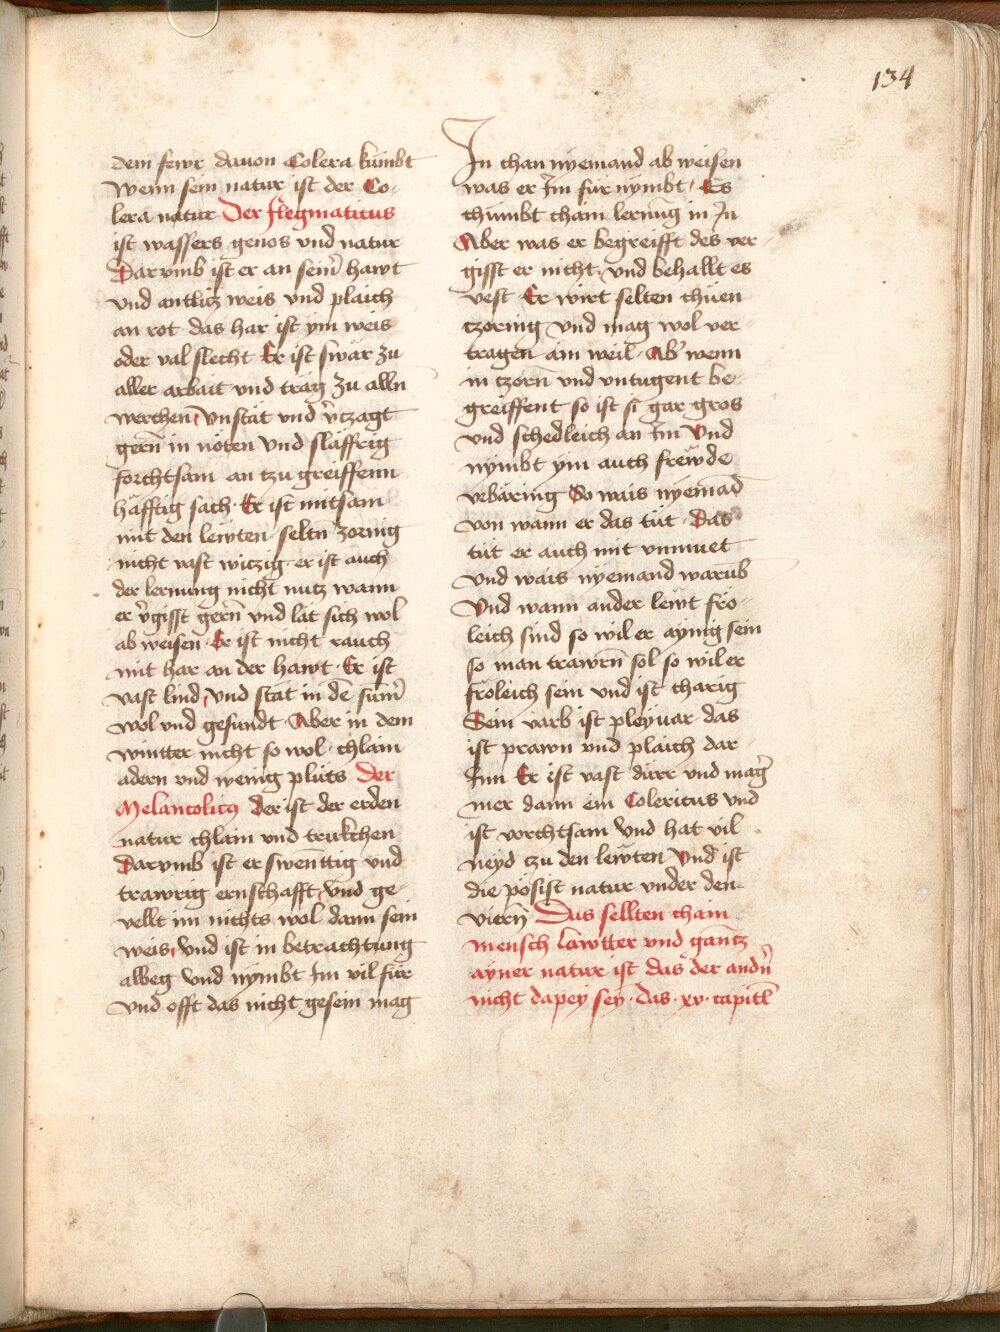 134
dem fewr dauon Colera kumbt
Wenn sein natur ist der Co-
lera natur Der flegmaticus
ist wassers genos vnd natur
Darvmb ist er an sein̄ hawt
vnd antlitz weis vnd plaich
an rot das har ist ym weis
oder val slecht Er ist swär zu
aller arbait vnd träg zu alln̄
werchen Vnstät vnd v̄czagt
gern̄ in nöten vnd släffrig
forchtsam an tzu greiffenn
häfftig sach · Er ist mitsam
mit den lewten selten̄ zornig
nicht vast witzig · er ist auch
der lernung nicht nutz wann
er v̄gisst gern̄ vnd lät sich wol
ab weisen · Er ist nicht rauch
mit har an der hawt · Er ist
vast lind, vnd stät in dē sum̄
wol vnd gesundt · Aber in dem
wintter nicht so wol · chlain
adern vnd wenig pluts Der
Melancolicꝯ der ist der erden
natur chlain vnd trukchen
Darvmb ist er swenttig vnd
trawrig ernschafft, vnd ge-
vellt im nichts wol dann sein
weis, vnd ist in betrachtung
albeg vnd nymbt Im vil für
vnd offt das nicht gesein mag
In chan nyemand ab weisen
was er Im für nymbt · Es
chumbt cham lernūg in In
Aber was er begreifft des ver-
gisst er nicht, vnd behallt es
vest Er wirt selten chüen
czoring vnd mag wol ver-
tragen ain weil · Ab' wenn
in czorn̄ vnd vntugent be-
greiffent so ist si gar gros
vnd schedleich an Im Vnd
nymbt ym auch frewde
vrbäring So wais nyemād
von wann er das tüt · Das
tüt er auch mit vnmuet
vnd wais nyemand warūb
Vnd wann ander lewt frö-
leich sind so wil er aynig sein
so man trawrn̄ sol so wil er
fröleich sein vnd ist charig
Sein varb ist pleyuar das
ist prawn vnd plaich dar-
Inn Er ist vast dürr vnd maḡ
mer dann ein Colericus vnd
ist vorchtsam vnd hat vil
neyd czu den lewten Vnd ist
die pösist natur vnder den
viern̄ Das sellten chain
mensch lawtter vnd gantz
ayner natur ist das der andn̄
nicht dapey sey · das · xv · capitl̄